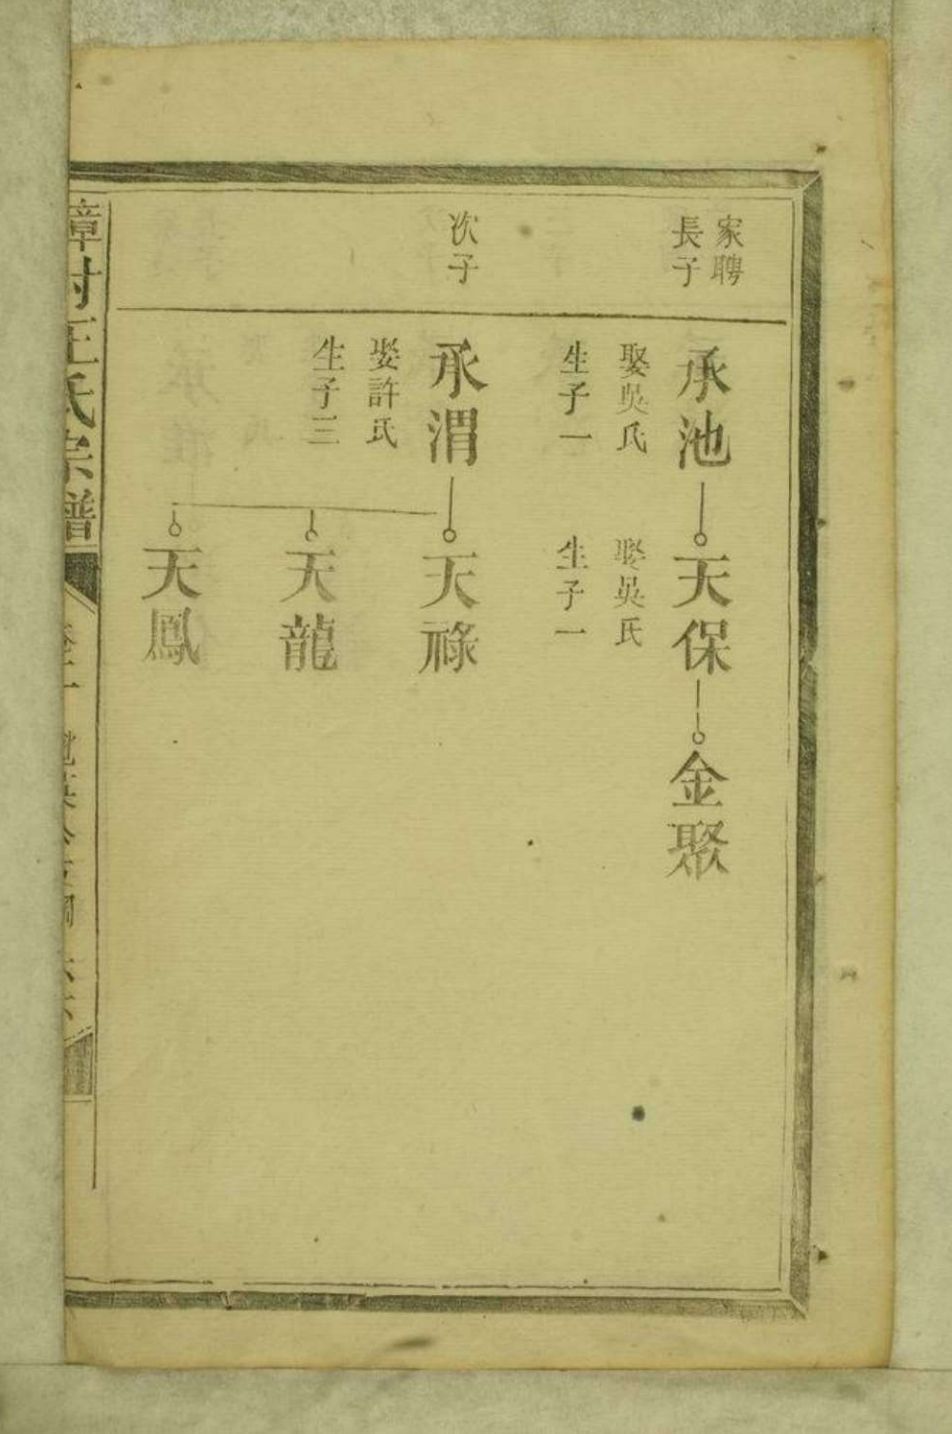 家聘
長子
承池
娶吳氏
生子一
天保
娶吳氏
生子一
金聚
次子
承渭
娶許氏
生子三
天祿
天龍
天鳳
王氏宗譜